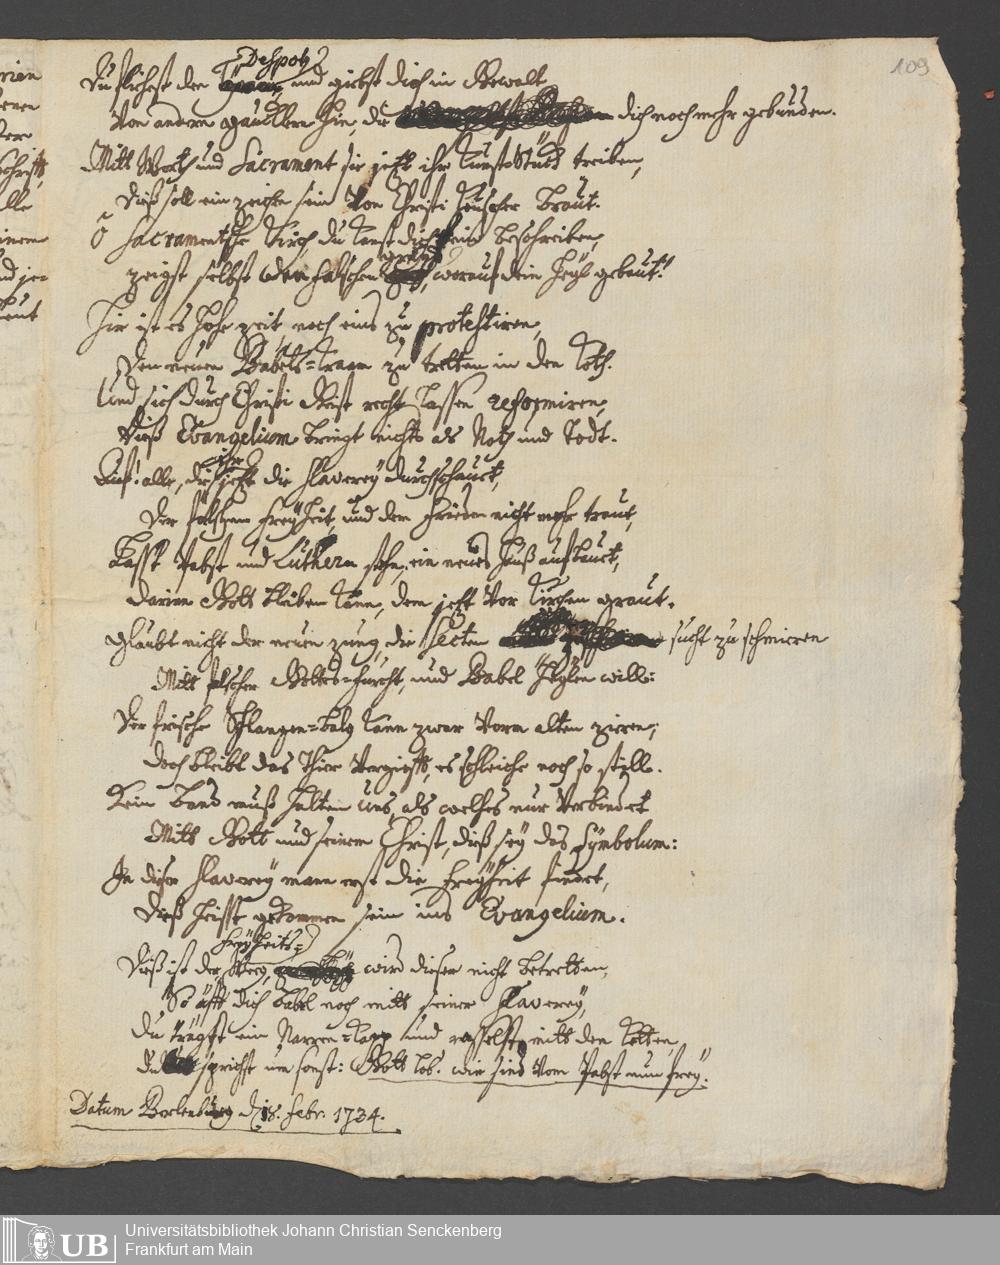 109
Despoten
Du fliehest den und giebst dich in Gewalt
Von andern gaucklern hin, die dich noch mehr gebunden.
Mitt Worth und Sacrament sie jetzt ihr Kunst-Stück treiben,
Dieß soll ein zeichen sein Von Christi keuscher Braut.
ô Sacramentsche Kirch, du kanst dich fein beschreiben,
grund
zeigst selbst den falschen, worauf dein Heyl gebaut!
Hir ist es hohe zeit, noch eins zu protestiren,
Den neuen Babels-kram zu tretten in den Koth.
Und sich durch Christi Geist recht lassen reformiren,
Dieß Evangelium bringt nichts als Noth und Todt.
ihr
Auf! alle, die jetzt die Slaverey durchschaut,
Der falschen Freyheit, und dem Frieden nicht mehr traut,
Lasst Pabst und Luthern stehn, ein neues Hauß aufbaut,
Darinn Gott bleiben kann, dem jetzt Vor Kirchen graut.
Glaubt nicht der neuen zung, die Secten sucht zu schmieren
Mitt falscher Gottes-furcht, und Babel heylen will:
Der frische Schlangen-balg kann zwar Vorm alten zieren;
Doch bleibt das Thier Vergifft, es schleiche noch so still.
Kein band muß halten uns, als welches nur Verbindet
Mitt Gott und seinem Christ, dieß sey das Symbolum:
In dieser Slaverey mann erst die Freyheit findet,
Dieß heisst gekommen sein ins Evangelium.
Freyheits-
Dieß ist der Weg, wird dieser nicht betretten,
So äfft dich Babel noch mitt seiner Slaverey,
Du trägst ein Narren-kapp und rasselst mitt den Ketten,
Du sprichst um sonst: Gott lob. wir sind Vom Pabst nun frey.
Datum Berlenburg d. 18. Febr. 1734.
UB
Universitätsbibliothek Johann Christian Senckenberg
Frankfurt am Main